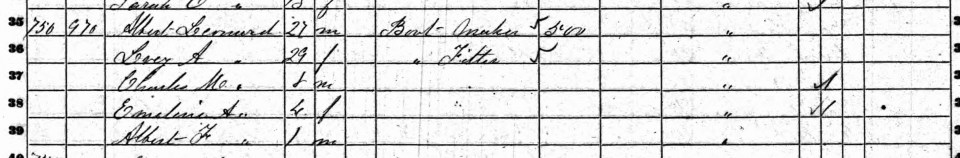 Sarah E "
35 750 970 Albert Leonard 27 m Boot Maker 5 500 "
36 Lucy A " 29 f " Fitter 5 "
37 Charles M. " m "
38 Emeline A " f "
39 Albert F " 1 m "